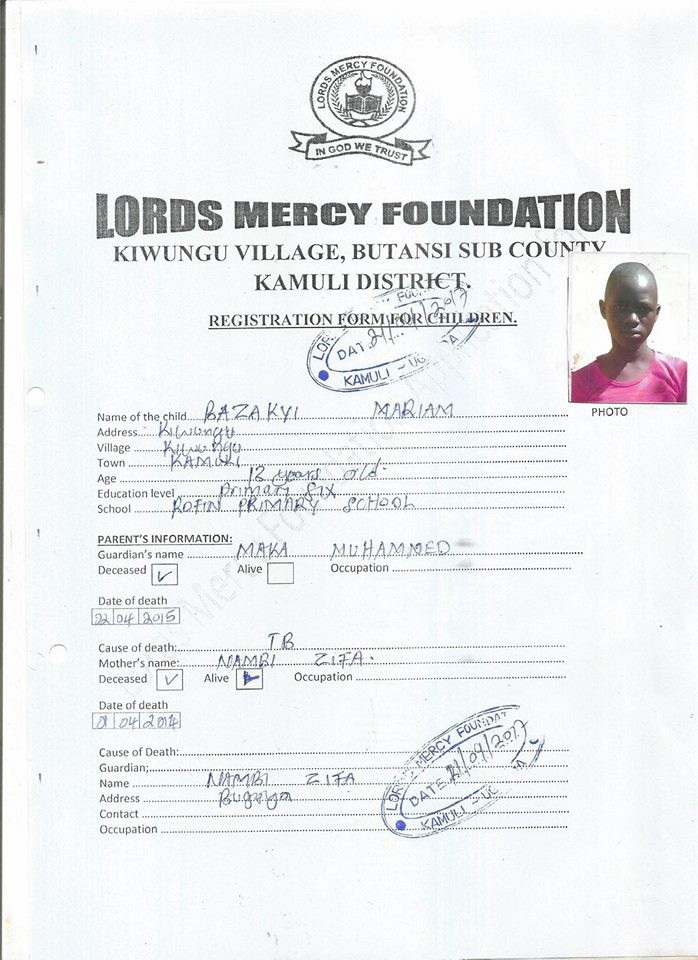 LORDS MERCY FOUNDATION
IN GOD WE TRUST
LORDS MERCY FOUNDATION
KIWUNGU VILLAGE, BUTANSI SUB COUNTY
KAMULI DISTRICT.
REGISTRATION FORM FOR CHILDREN.
DATE 21/09/2017
KAMULI - UGANDA
PHOTO
Name of the child BAZAKYI MARIAM
Address Kiwungu
Village Kiwungu
Town KAMULI
Age 12 years old.
Education level primary six
School ROFIN PRIMARY SCHOOL
PARENT'S INFORMATION:
Guardian's name MAKA MUHAMMED
Deceased ✓ Alive Occupation
Date of death
22 04 2015
Cause of death: TB
Mother's name: NAMBI ZIFA.
Deceased ✓ Alive Occupation
Date of death
01 04 2014
Cause of Death:
Guardian;
Name NAMBI ZIFA
Address
Contact
Occupation
LORDS MERCY FOUNDAT
DATE 21/09/2017
KAMULI - UG